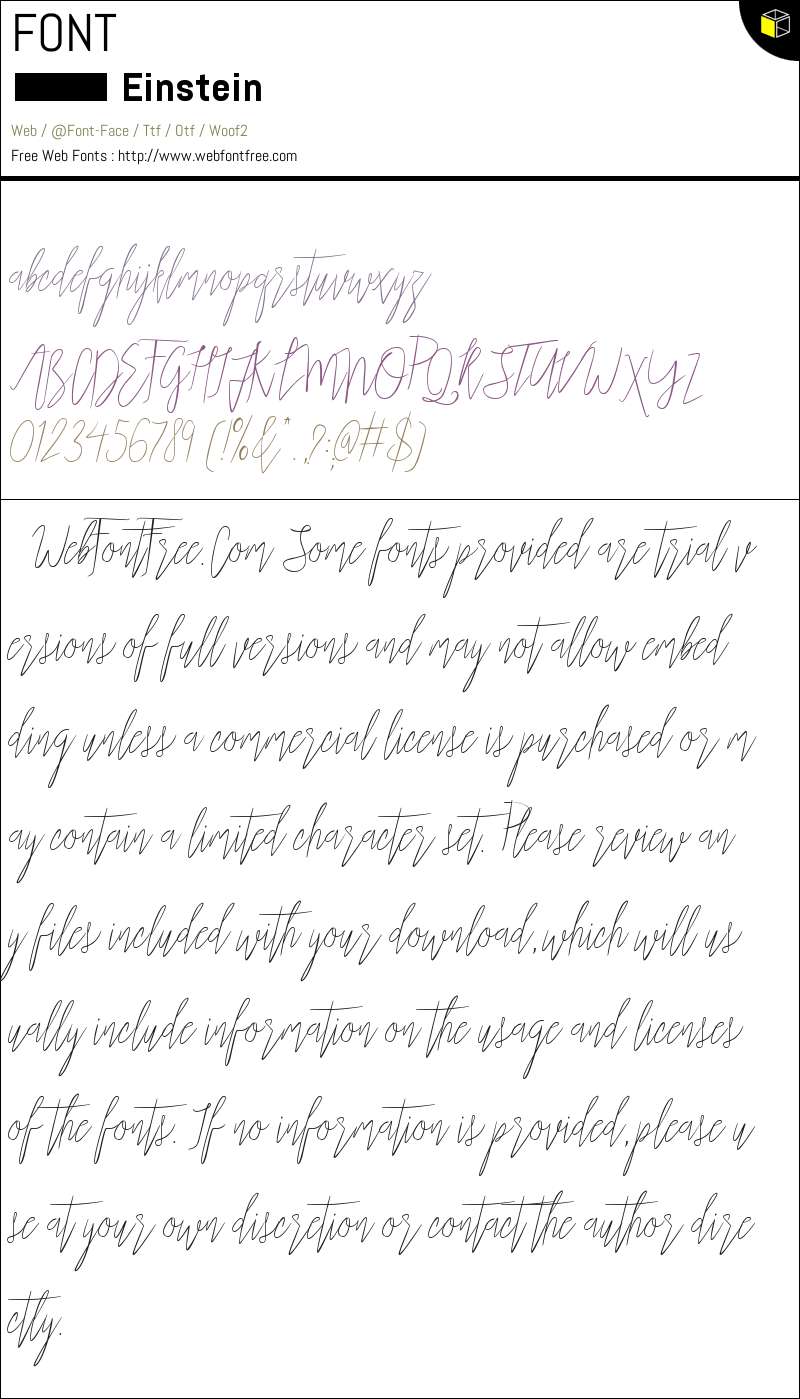 FONT
Einstein
Web / @Font-Face / Ttf / Otf / Woof2
Free Web Fonts : http://www.webfontfree.com
abcdefghijklmnopqrstuvwxyz
ABCDEFGHIJKLMNOPQRSTUVWXYZ
0123456789 (!%&*.,?:;@#$)
WebFontFree.Com Some fonts provided are trial v
ersions of full versions and may not allow embed
ding unless a commercial license is purchased or m
ay contain a limited character set. Please review an
y files included with your download, which will us
ually include information on the usage and licenses
of the fonts. If no information is provided, please u
se at your own discretion or contact the author dire
ctly.